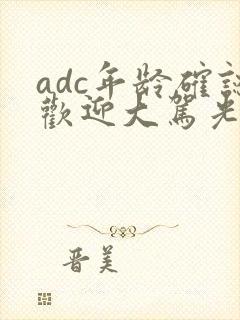 adc年龄確認
歡迎大駕光
晋美